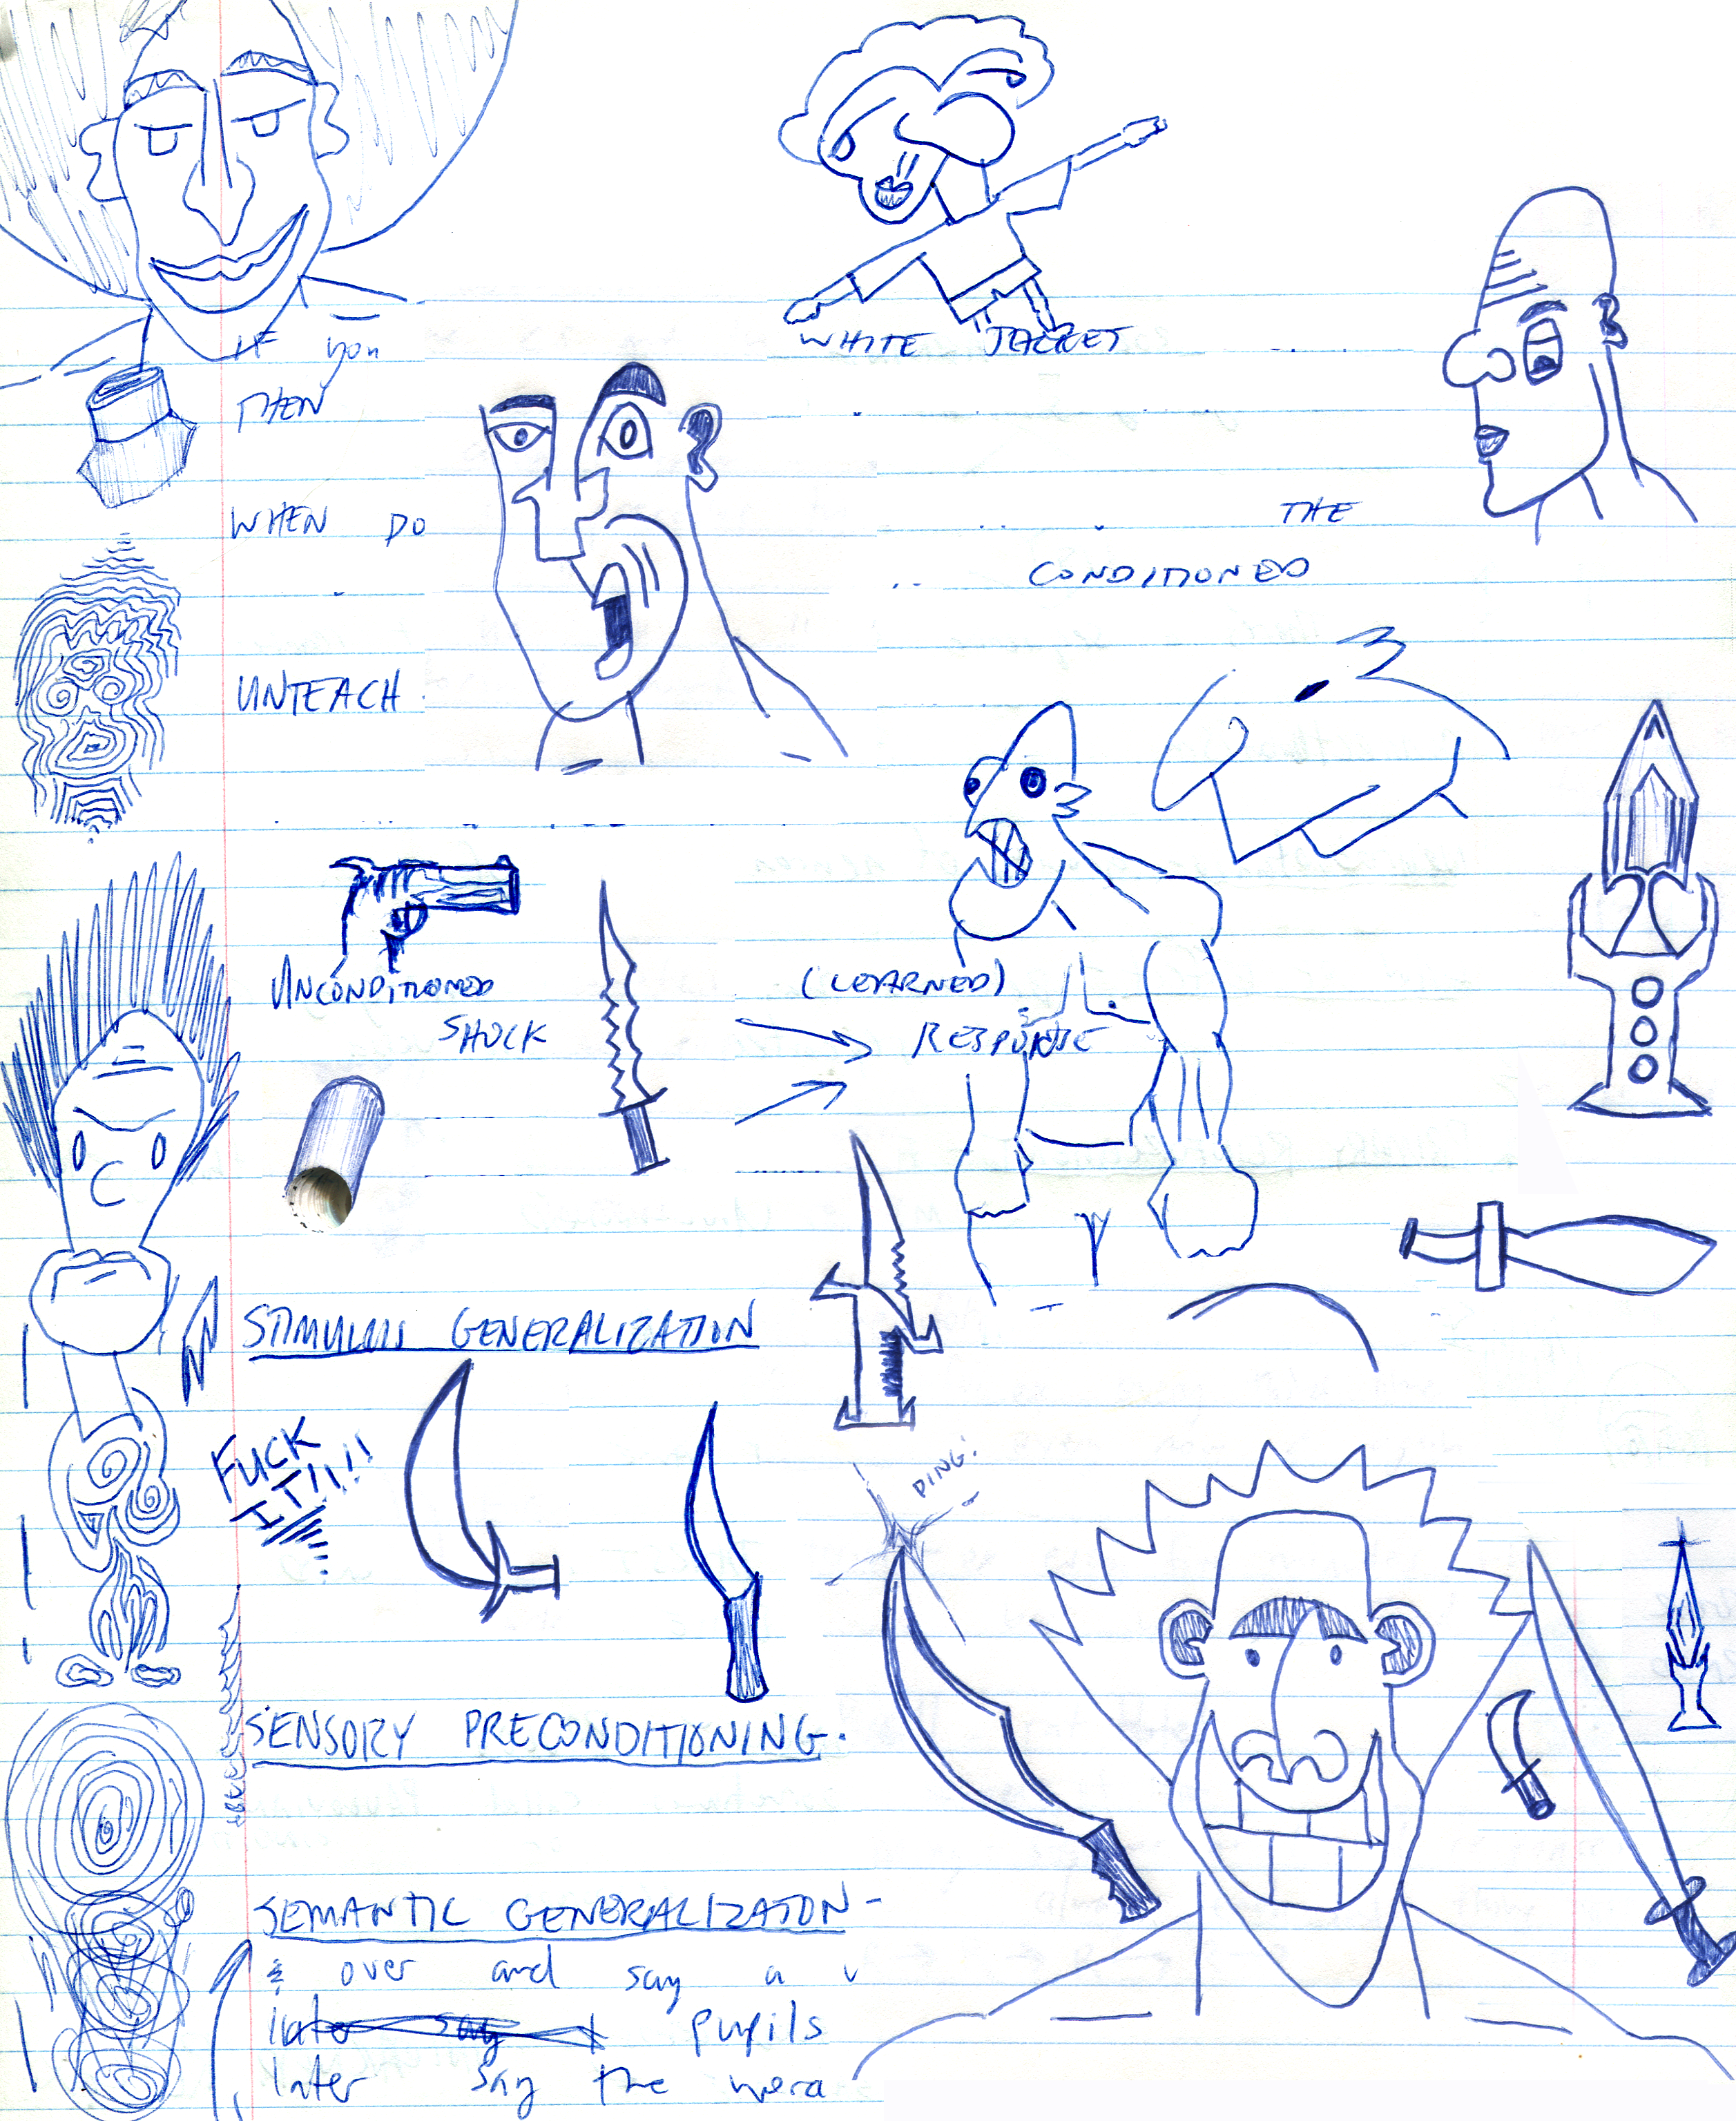 WHITE JACKET
IF you
THEN
WHEN DO
THE
CONDITIONED
UNTEACH
UNCONDITIONED
SHOCK
(LEARNED)
RESPONSE
STIMULUS GENERALIZATION
FUCK
IT!!!!
DING!
SENSORY PRECONDITIONING.
SEMANTIC GENERALIZATON-
& over and say a v
later say pupils
later say the